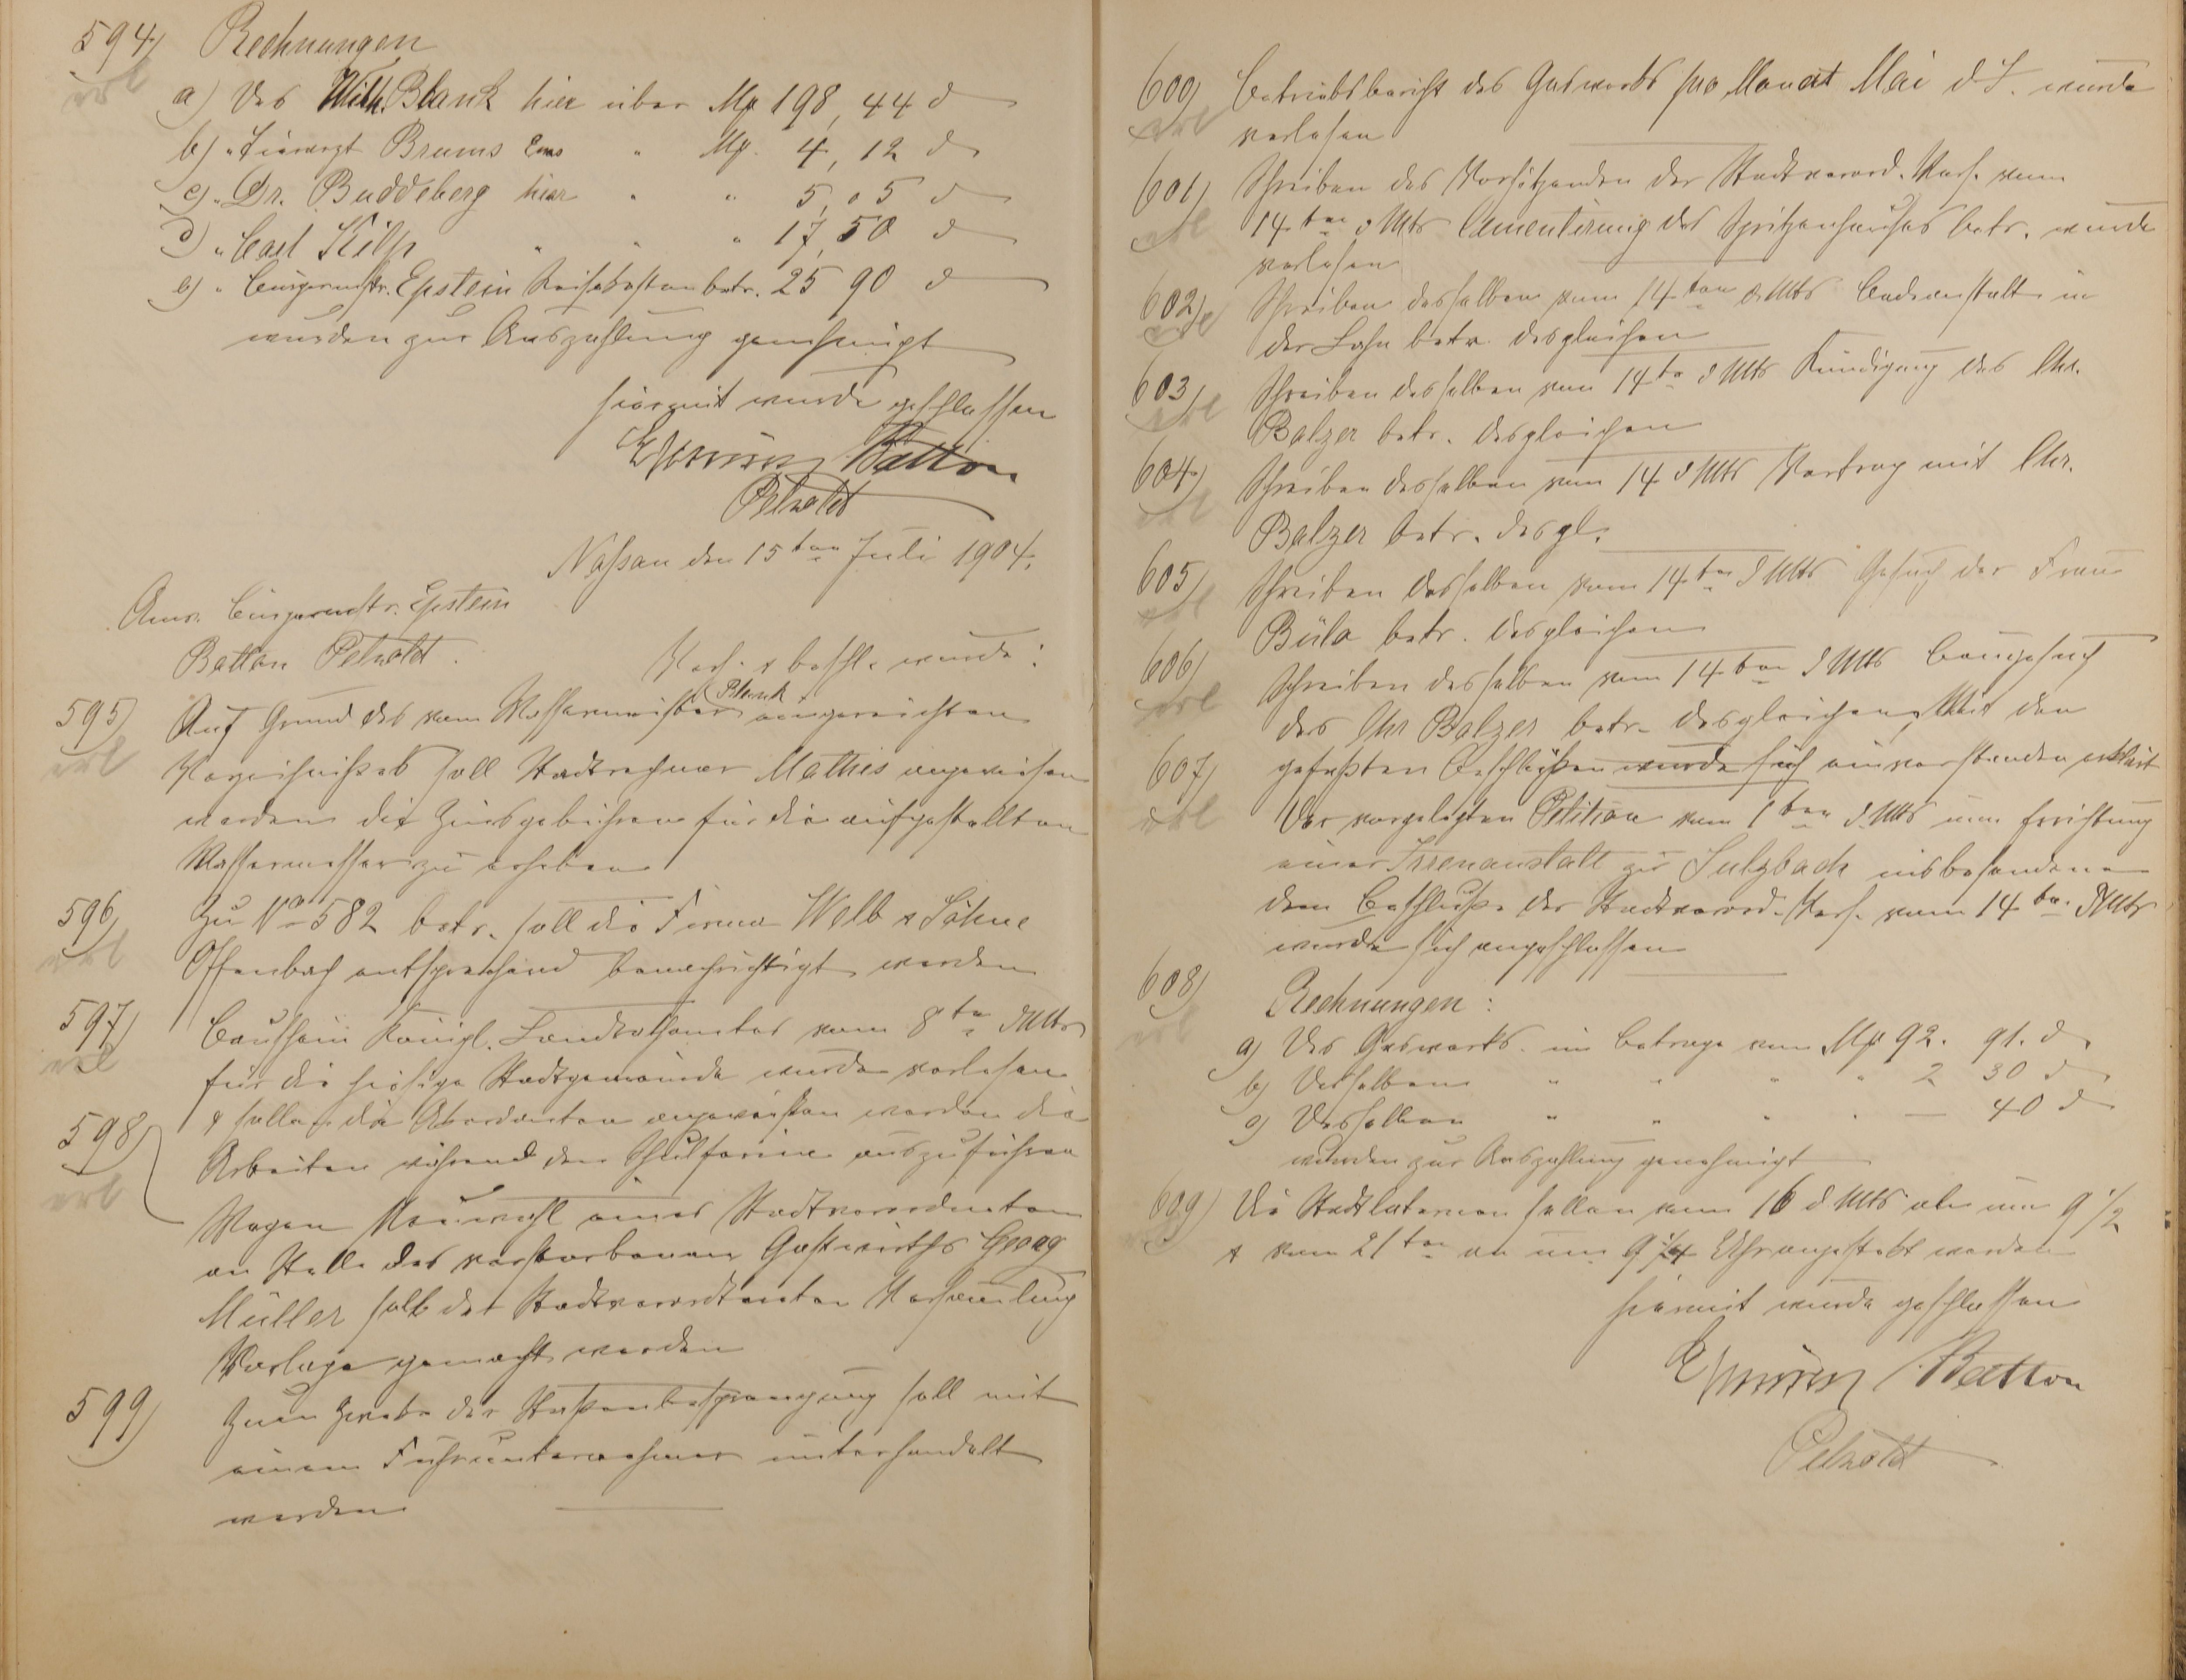 594) Rechnungen
erl
a) Des Wilh. Blank hier über Mk 198, 44 d
b) " Tierarzt Bruns Ems " Mk. 4, 12 d
c) " Dr. Buddeberg hier " " 5, 05 d
d) " Carl Kilp " " " 17, 50 d
e) " Bürgermstr. Epstein Reisekosten betr. 25 90 d
wurden zur Auszahlung genehmigt
hiermit wurde geschlossen
Epstein Batton
Petzoldt
Naßau den 15ten Juli 1904.
Anw. Bürgermstr. Epstein
Batton Petzoldt.
Verh. & beschl. wurde:
595) Auf Grund des vom Wassermeister Blank eingereichten
erl Verzeichnißes soll Stadtrechner Mathis angewiesen
werden die Zinsgebühren für die aufgestellten
Wassermesser zu erheben
596) Zu No 582 betr. soll die Firma Welb & Söhne
erl Offenbach entsprechend benachrichtigt werden
597) Bauschein Königl. Landrathsamtes vom 8ten d Mts
erl für die hiesige Stadtgemeinde wurde verlesen
& sollen die Akordanten angewiesen werden die
598) Arbeiten während den Schulferien auszuführen
erl Wegen Neuwahl eines Stadtverordneten
an Stelle des verstorbenen Gastwirths Georg
Müller soll der Stadtverordneten Versammlung
Vorlage gemacht werden
599) Zum Zwecke der Straßenbesprengung soll mit
einem Fuhrunternehmer unterhandelt
werden
600) Betriebsbericht des Gaswerks pro Monat Mai d J. wurde
erl verlesen
601) Schreiben des Vorsitzenden der Stadtverord. Vers. vom
erl 14ten d Mts Cementirung des Spritzenhauses betr. wurde
verlesen
602) Schreiben desselben vom 14ten d Mts Badeanstalt in
erl der Lahn betr. desgleichen
603) Schreiben desselben vom 14ten d Mts Kündigung des Chr.
erl Balzer betr. desgleichen
604) Schreiben desselben vom 14 d Mts Vertrag mit Chr.
erl Balzer betr. desgl.
605) Schreiben desselben vom 14ten d Mts Gesuch der Frau
erl Büla betr. desgleichen
606) Schreiben desselben vom 14ten d Mts Baugesuch
erl des Chr Balzer betr. desgleichen, Mit den
607) gefaßten Beschlüßen wurde sich einverstanden erklärt
erl Der vorgelegten Petition vom 1ten d. Mts um Errichtung
einer Irrenanstalt zu Sulzbach insbesondere
dem Beschluße der Stadtverord. Vers. vom 14ten d Mts
wurde sich angeschlossen
608) Rechnungen:
erl
a) Des Gaswerks im Betrage von Mk 92. 91. d
b) Desselben " " " " 2 30 d
c) Desselben " " " " — 40 d
wurden zur Auszahlung genehmigt
609) Die Stadtlaternen sollen vom 16 d Mts ab um 9 1/2
& vom 21ten an um 9 1/4 Uhr angesteckt werden
hiermit wurde geschlossen
Epstein Batton
Petzoldt